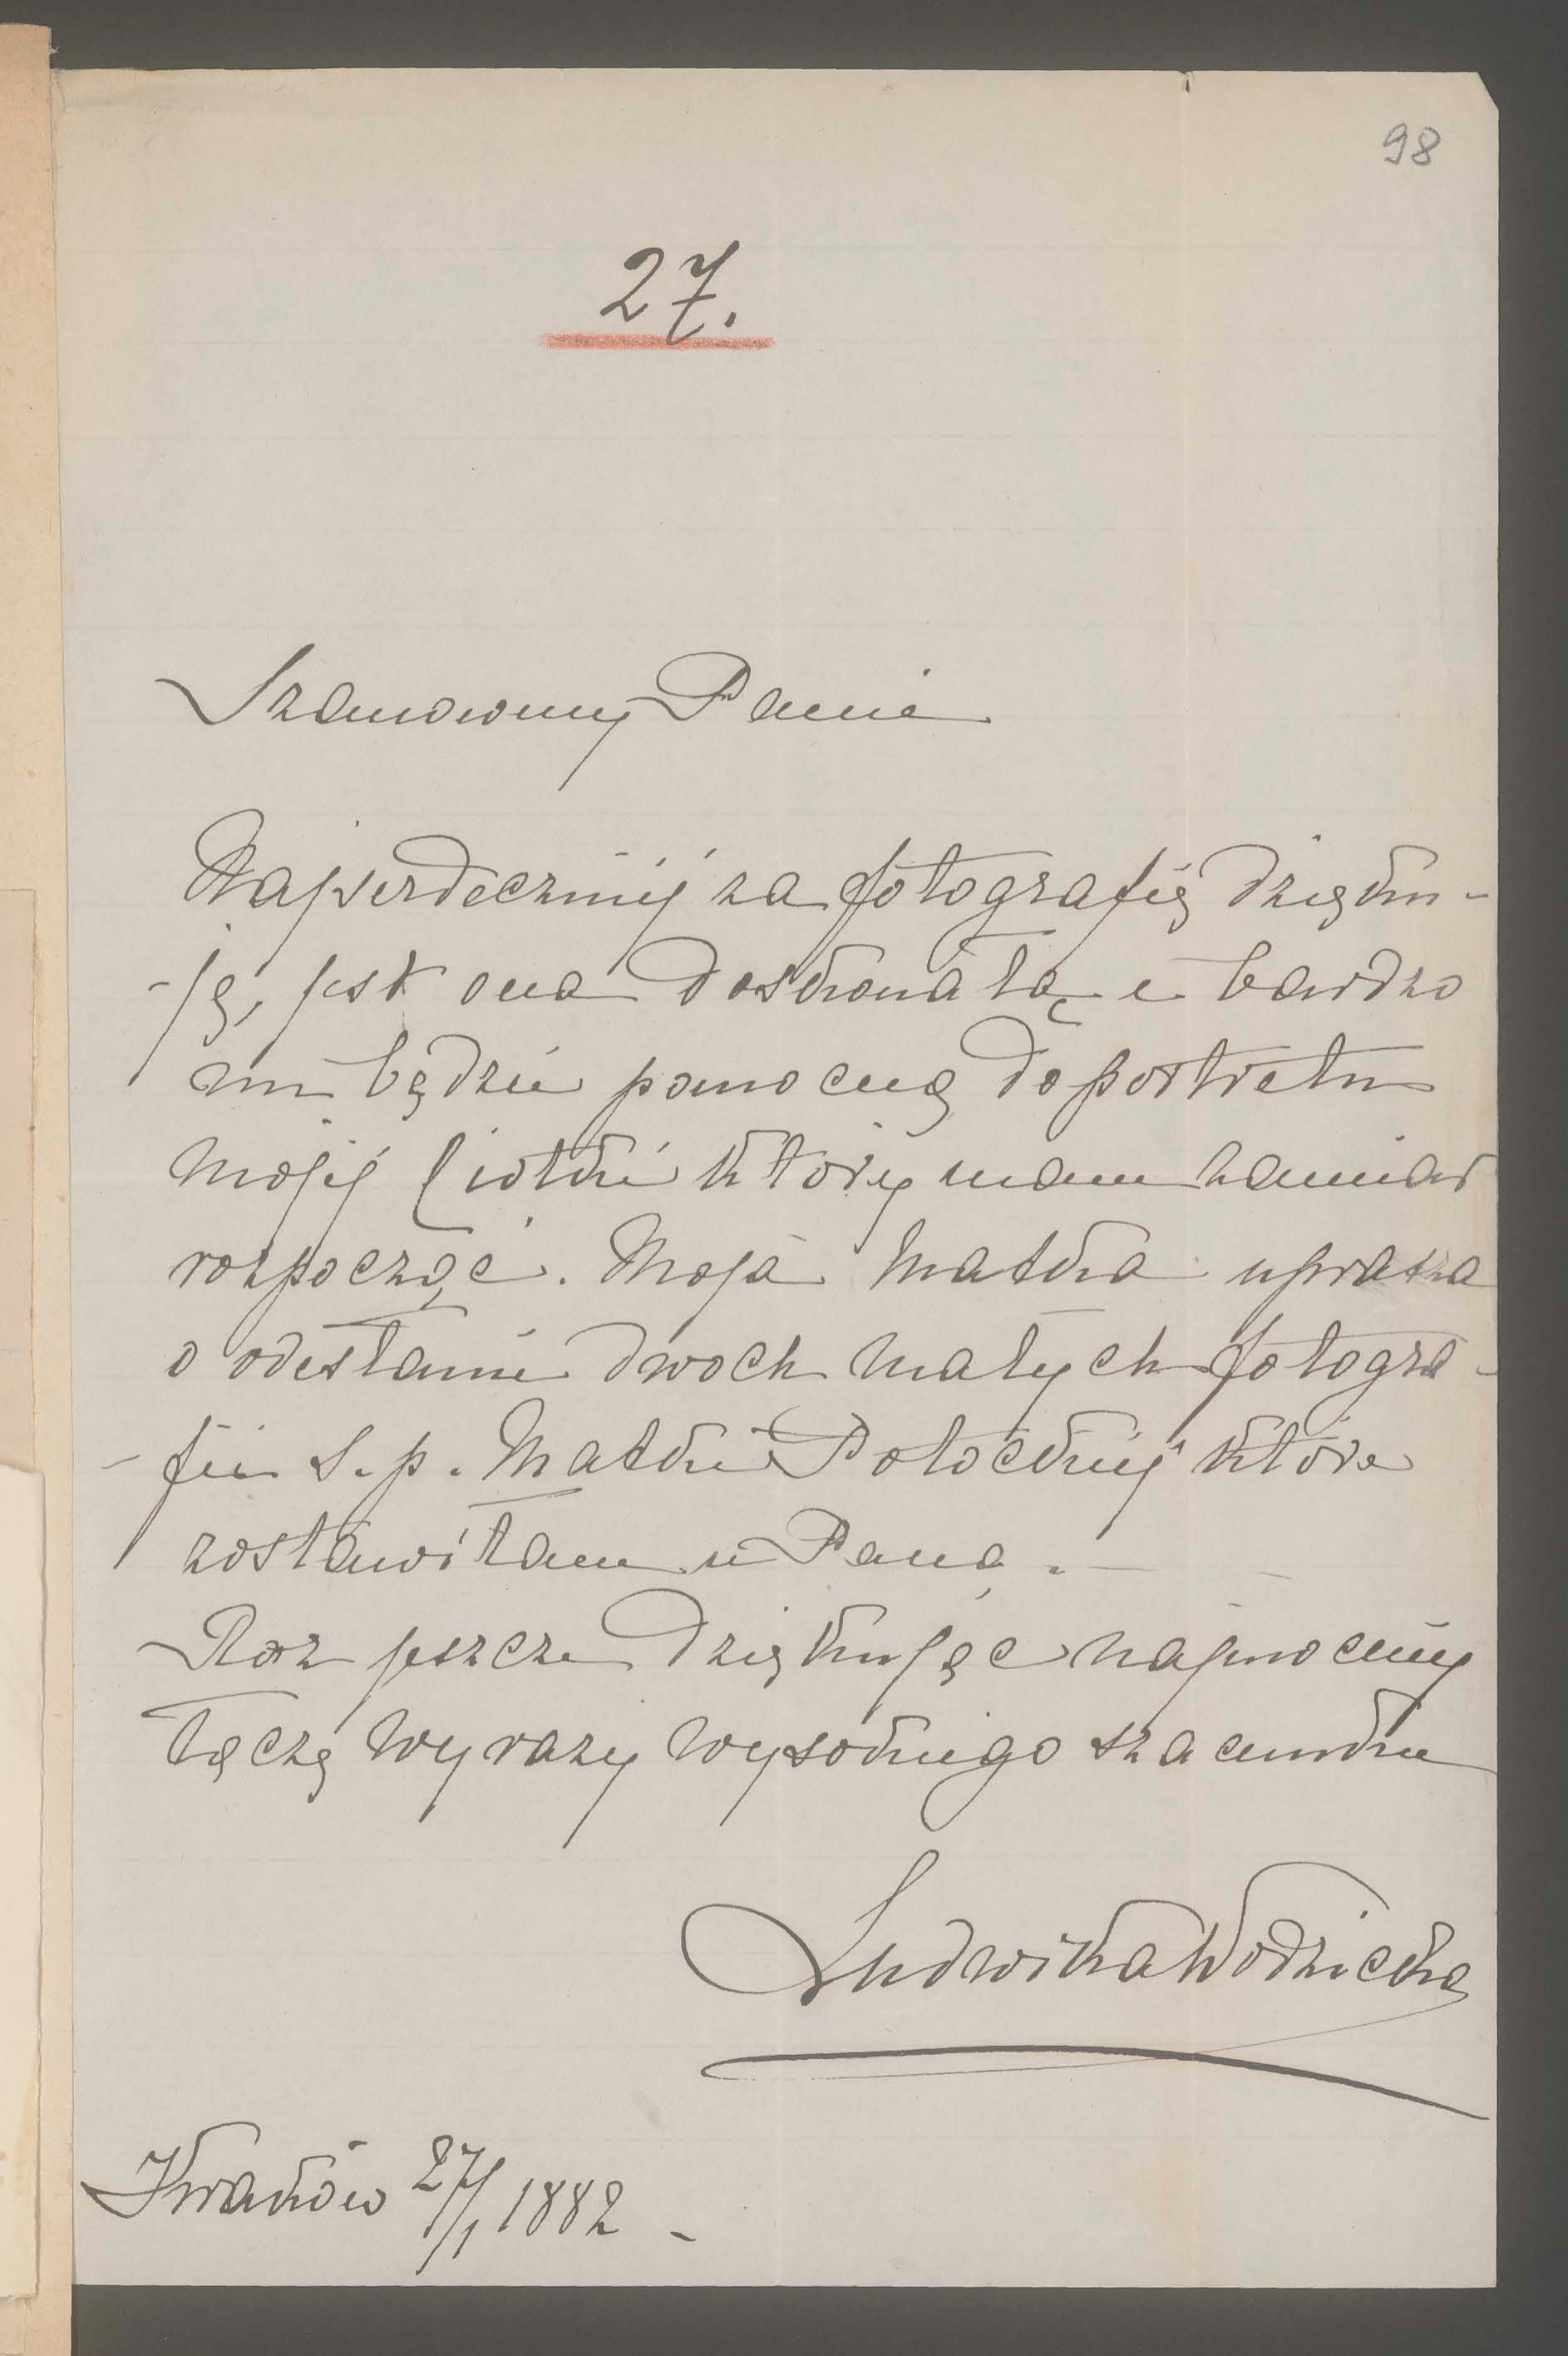 98
27.
Szanowny Panie
Najserdeczniéj za fotografię dzięku-
-ję, jest ona doskonałą i bardzo
mi będzie pomocną do portretu
mojéj Ciotki który mam zamiar
rozpocząć. Moja Matka uprasza
o odesłanie dwoch małych fotogra-
-fii S. p. Matki Potockiéj które
zostawiłam u Pana. -
Raz jeszcze dziękując najmocniéj
łączę wyrazy wysokiego szacunku
Ludwika Wodzicka
Kraków 27/1 1882 -